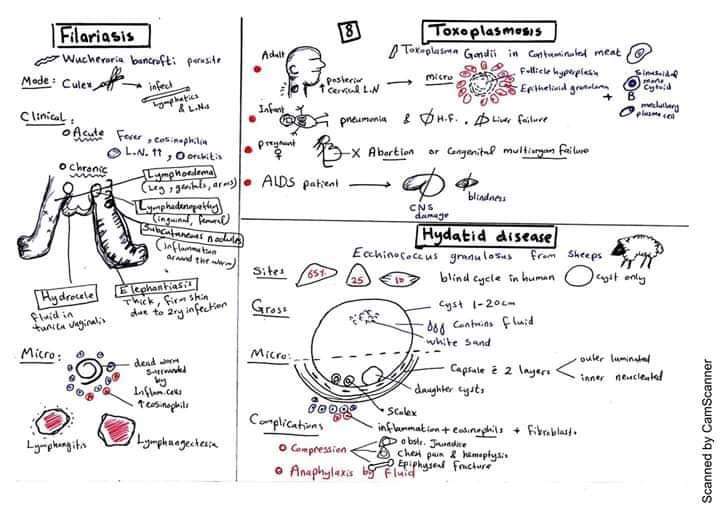 Filariasis
Wuchereria bancrofti parasite
Mode: Culex → infect
lymphatics
& L.Nis
Clinical:
Acute Fever, eosinophilia
L.N. ↑↑, orchitis
Chronic
Lymphoedema
(Leg, genitals, arms)
Lymphadenopathy
(inguinal, femoral)
Subcutaneous nodules
(inflammation
around the worm)
Hydrocele
fluid in
tunica vaginalis
Elephantiasis
Thick, firm skin
due to 2ry infection
Micro:
dead worm
surrounded
by
Inflam. cells
↑ eosinophils
Lymphangitis
Lymphangectesia
8
Toxoplasmosis
Toxoplasma Gondii in contaminated meat
Adult
posterior
↑ cervical L.N
→ micro
Follicle hyperplasia
Epithelioid granuloma
+
Sinusoidal
mono
cytoid
B
medullary
plasma cell
Infant
pneumonia & H.F. , Liver failure
pregnant
♀
X Abortion or congenital multiorgan failure
AIDS patient →
CNS
damage
blindness
Hydatid disease
Echinococcus granulosus from sheeps
Sites 65% 25 10 blind cycle in human cyst only
Gross
Cyst 1-20cm
Contains fluid
white sand
Micro:
Capsule c̄ 2 layers
outer laminated
inner neucleated
daughter cysts
Scolex
inflammation + eosinophils + Fibroblasts
Complications
Compression
obstr. Jaundice
Chest pain & hemoptysis
Epiphyseal fracture
Anaphylaxis by fluid
Scanned by CamScanner